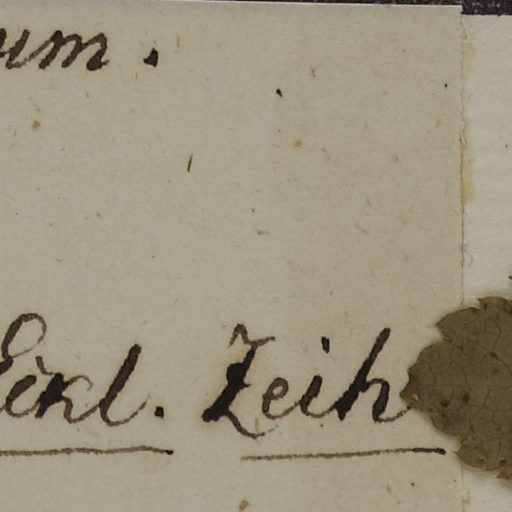 um.
Eckl. Zeih